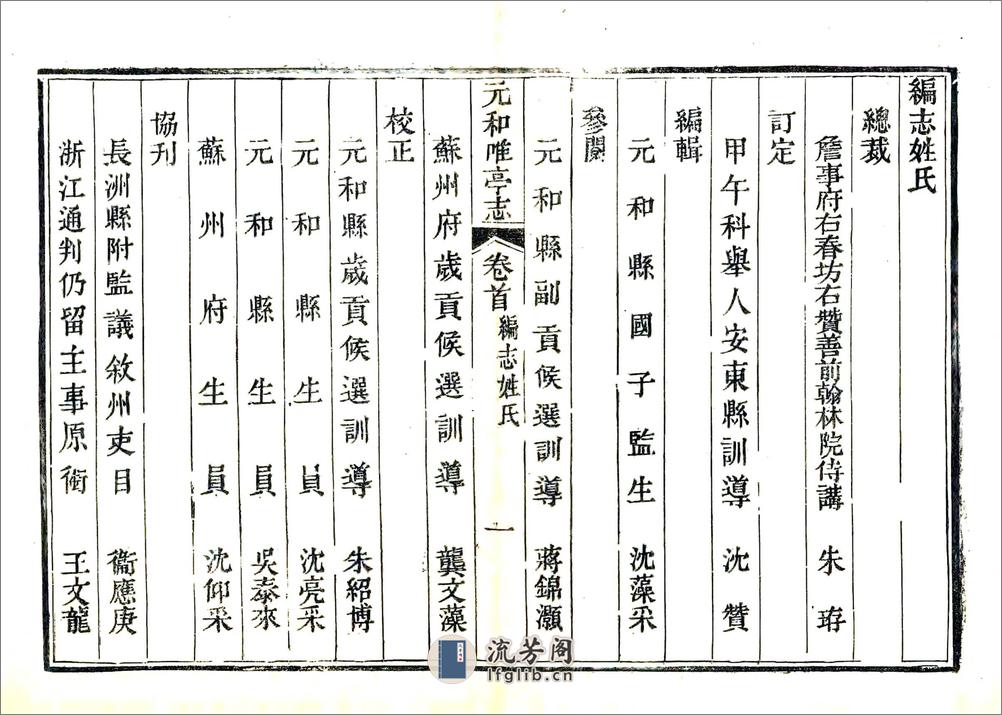 編志姓氏
總裁
詹事府右春坊右贊善前翰林院侍講 朱珔
訂定
甲午科舉人安東縣訓導 沈贊
編輯
元和縣國子監生 沈藻采
參閱
元和縣副貢候選訓導 蔣錦灝
元和唯亭志 卷首 編志姓氏 一
蘇州府歲貢候選訓導 龔文藻
校正
元和縣歲貢候選訓導 朱紹博
元和縣生員 沈亮采
元和縣生員 吳泰來
蘇州府生員 沈仰采
協刊
長洲縣附監議敘州吏目 衞應庚
浙江通判仍留主事原銜 王文龍
流芳阁
lfglib.cn